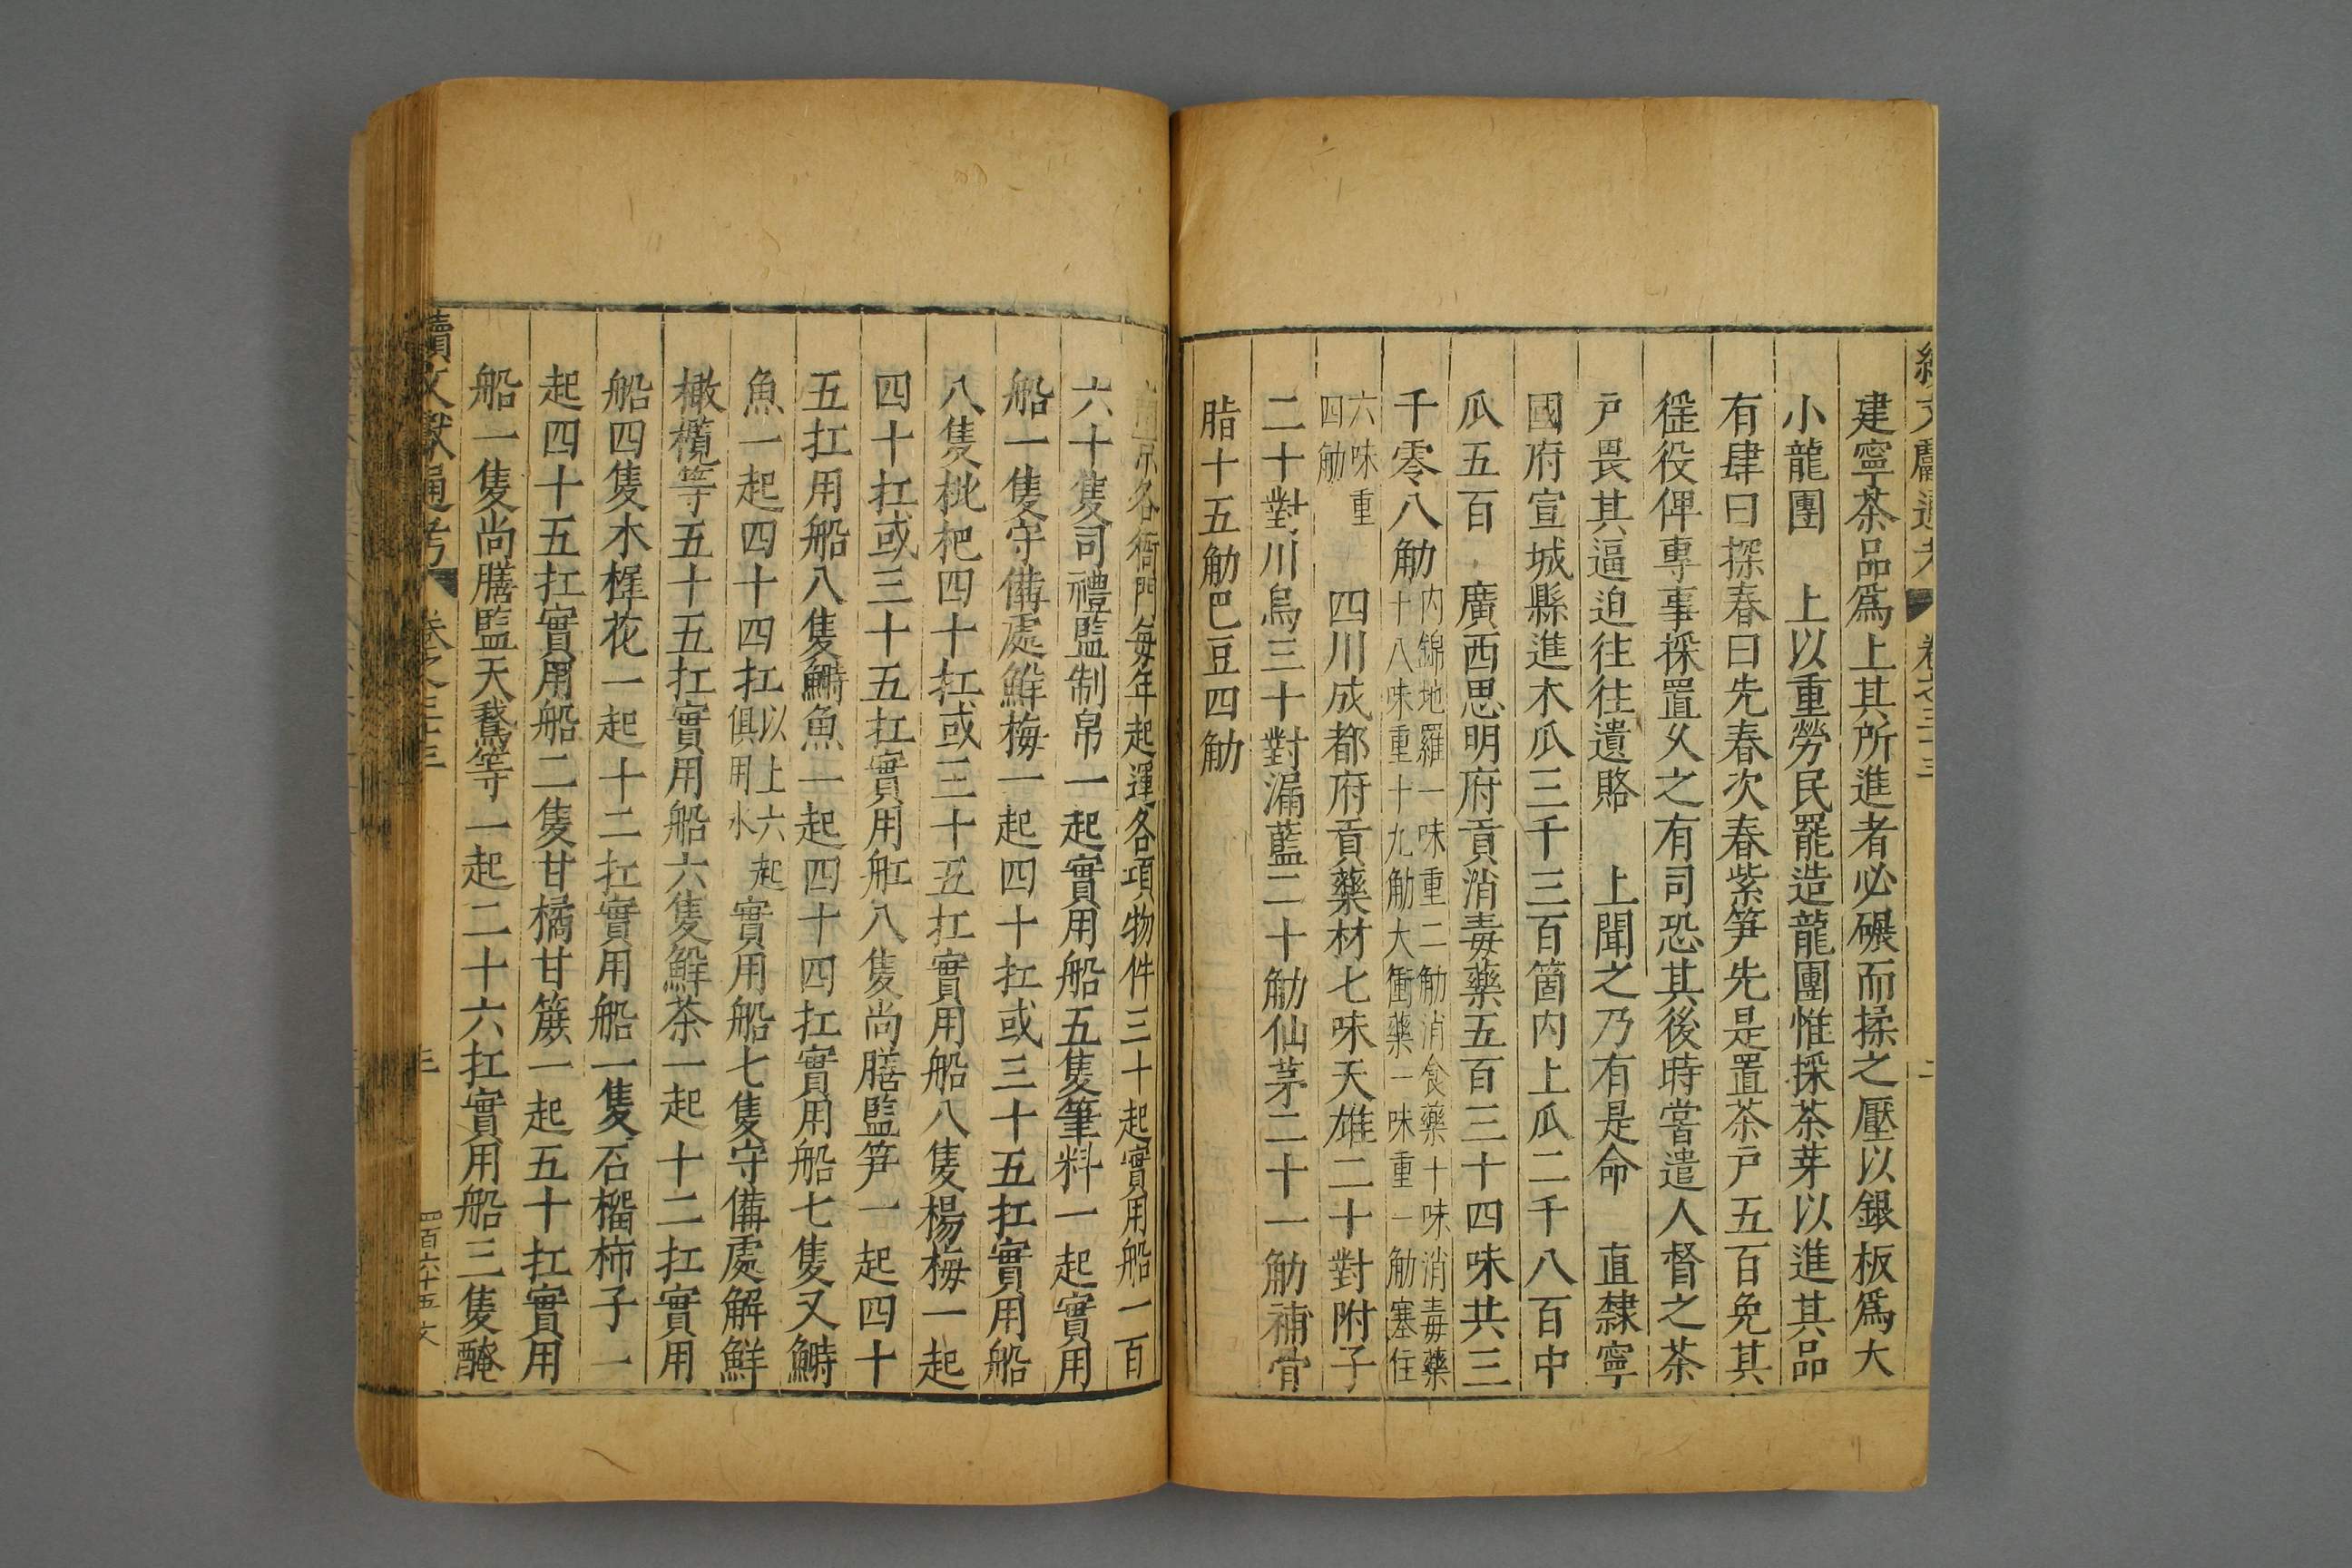 建寧茶品爲上其所進者必碾而揉之壓以銀板爲大
小龍團　上以重勞民罷造龍團惟採茶芽以進其品
有肆曰探春曰先春次春紫笋先是置茶戸五百免其
徭役俾專事採置乆之有司恐其後時甞遣人督之茶
戸畏其逼迫往往遺賂　上聞之乃有是命　直隸寧
國府宣城縣進木瓜三千三百箇内上瓜二千八百中
瓜五百　廣西思明府貢消毒藥五百三十四味共三
千零八觔内錦地羅一味重二觔消食藥十味消毒藥
十八味重十九觔大衝藥一味重一觔塞住
六味重
四觔　四川成都府貢藥材七味天雄二十對附子
二十對川烏三十對漏藍二十觔仙茅二十一觔補骨
脂十五觔巴豆四觔
京各衙門每年起運各項物件三十起實用船一百
六十隻司禮監制帛一起實用船五隻筆料一起實用
船一隻守備處鮮梅一起四十扛或三十五扛實用船
八隻枇杷四十扛或三十五扛實用船八隻楊梅一起
四十扛或三十五扛實用舡八隻尚膳監笋一起四十
五扛用船八隻鰣魚一起四十四扛實用船七隻又鰣
魚一起四十四扛以上六起俱用氷實用船七隻守備處解鮮
橄欖等五十五扛實用船六隻鮮茶一起十二扛實用
船四隻木樨花一起十二扛實用船一隻石榴柿子一
起四十五扛實用船二隻甘橘甘簇一起五十扛實用
船一隻尚膳監天鵞等一起二十六扛實用船三隻醃
續文獻通考　卷之三十三　三　四百六十五文